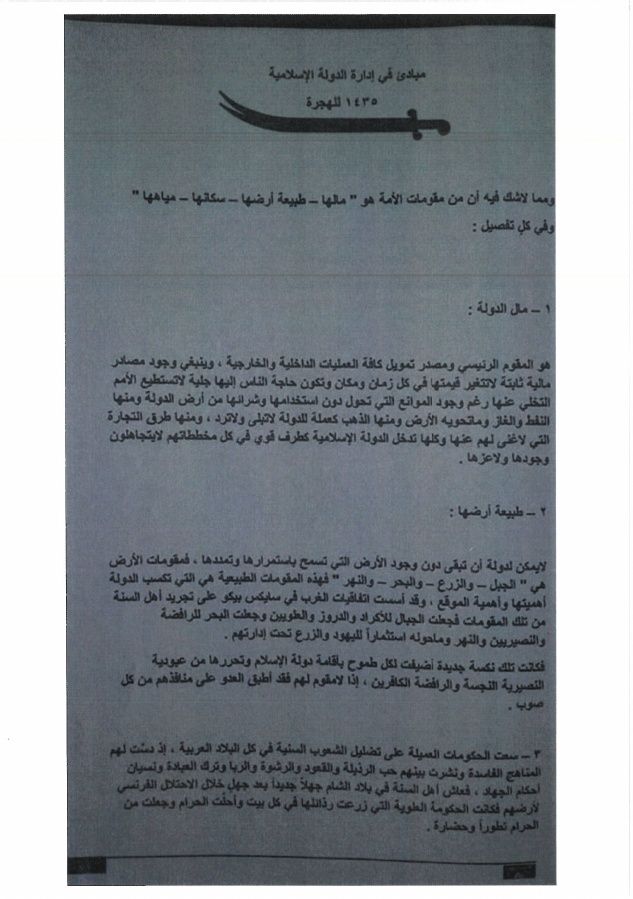 مبادئ في إدارة الدولة الإسلامية
١٤٣٥ للهجرة
ومما لاشك فيه أن من مقومات الأمة هو " مالها – طبيعة أرضها – سكانها – مياهها "
وفي كل تفصيل :
١ – مال الدولة :
هو المقوم الرئيسي ومصدر تمويل كافة العمليات الداخلية والخارجية ، وينبغي وجود مصادر
مالية ثابتة لاتتغير قيمتها في كل زمان ومكان وتكون حاجة الناس إليها جلية لاتستطيع الأمم
التخلي عنها رغم وجود الموانع التي تحول دون استخدامها وشرائها من أرض الدولة ومنها
النفط والغاز وماتحويه الأرض ومنها الذهب كعملة للدولة لاتبلى ولاترد ، ومنها طرق التجارة
التي لاغنى لهم عنها وكلها تدخل الدولة الإسلامية كطرف قوي في كل مخططاتهم لايتجاهلون
وجودها ولاعزها .
٢ – طبيعة أرضها :
لايمكن لدولة أن تبقى دون وجود الأرض التي تسمح باستمرارها وتمددها ، فمقومات الأرض
هي " الجبل – والزرع – والبحر – والنهر " فهذه المقومات الطبيعية هي التي تكسب الدولة
أهميتها وأهمية الموقع ، وقد أسست اتفاقيات الغرب في سايكس بيكو على تجريد أهل السنة
من تلك المقومات فجعلت الجبال للأكراد والدروز والعلويين وجعلت البحر للرافضة
والنصيريين والنهر وماحوله استثماراً لليهود والزرع تحت إدارتهم .
فكانت تلك نكسة جديدة أضيفت لكل طموح بأقامة دولة الإسلام وتحررها من عبودية
النصيرية النجسة والرافضة الكافرين ، إذا لامقوم لهم فقد أطبق العدو على منافذهم من كل
صوب .
٣ – سعت الحكومات العميلة على تضليل الشعوب السنية في كل البلاد العربية ، إذ دسّت لهم
المناهج الفاسدة ونشرت بينهم حب الرذيلة والقعود والرشوة والربا وترك العبادة ونسيان
أحكام الجهاد ، فعاش أهل السنة في بلاد الشام جهلاً جديداً بعد جهل خلال الاحتلال الفرنسي
لأرضهم فكانت الحكومة العلوية التي زرعت رذائلها في كل بيت وأحلّت الحرام وجعلت من
الحرام تطوراً وحضارة .